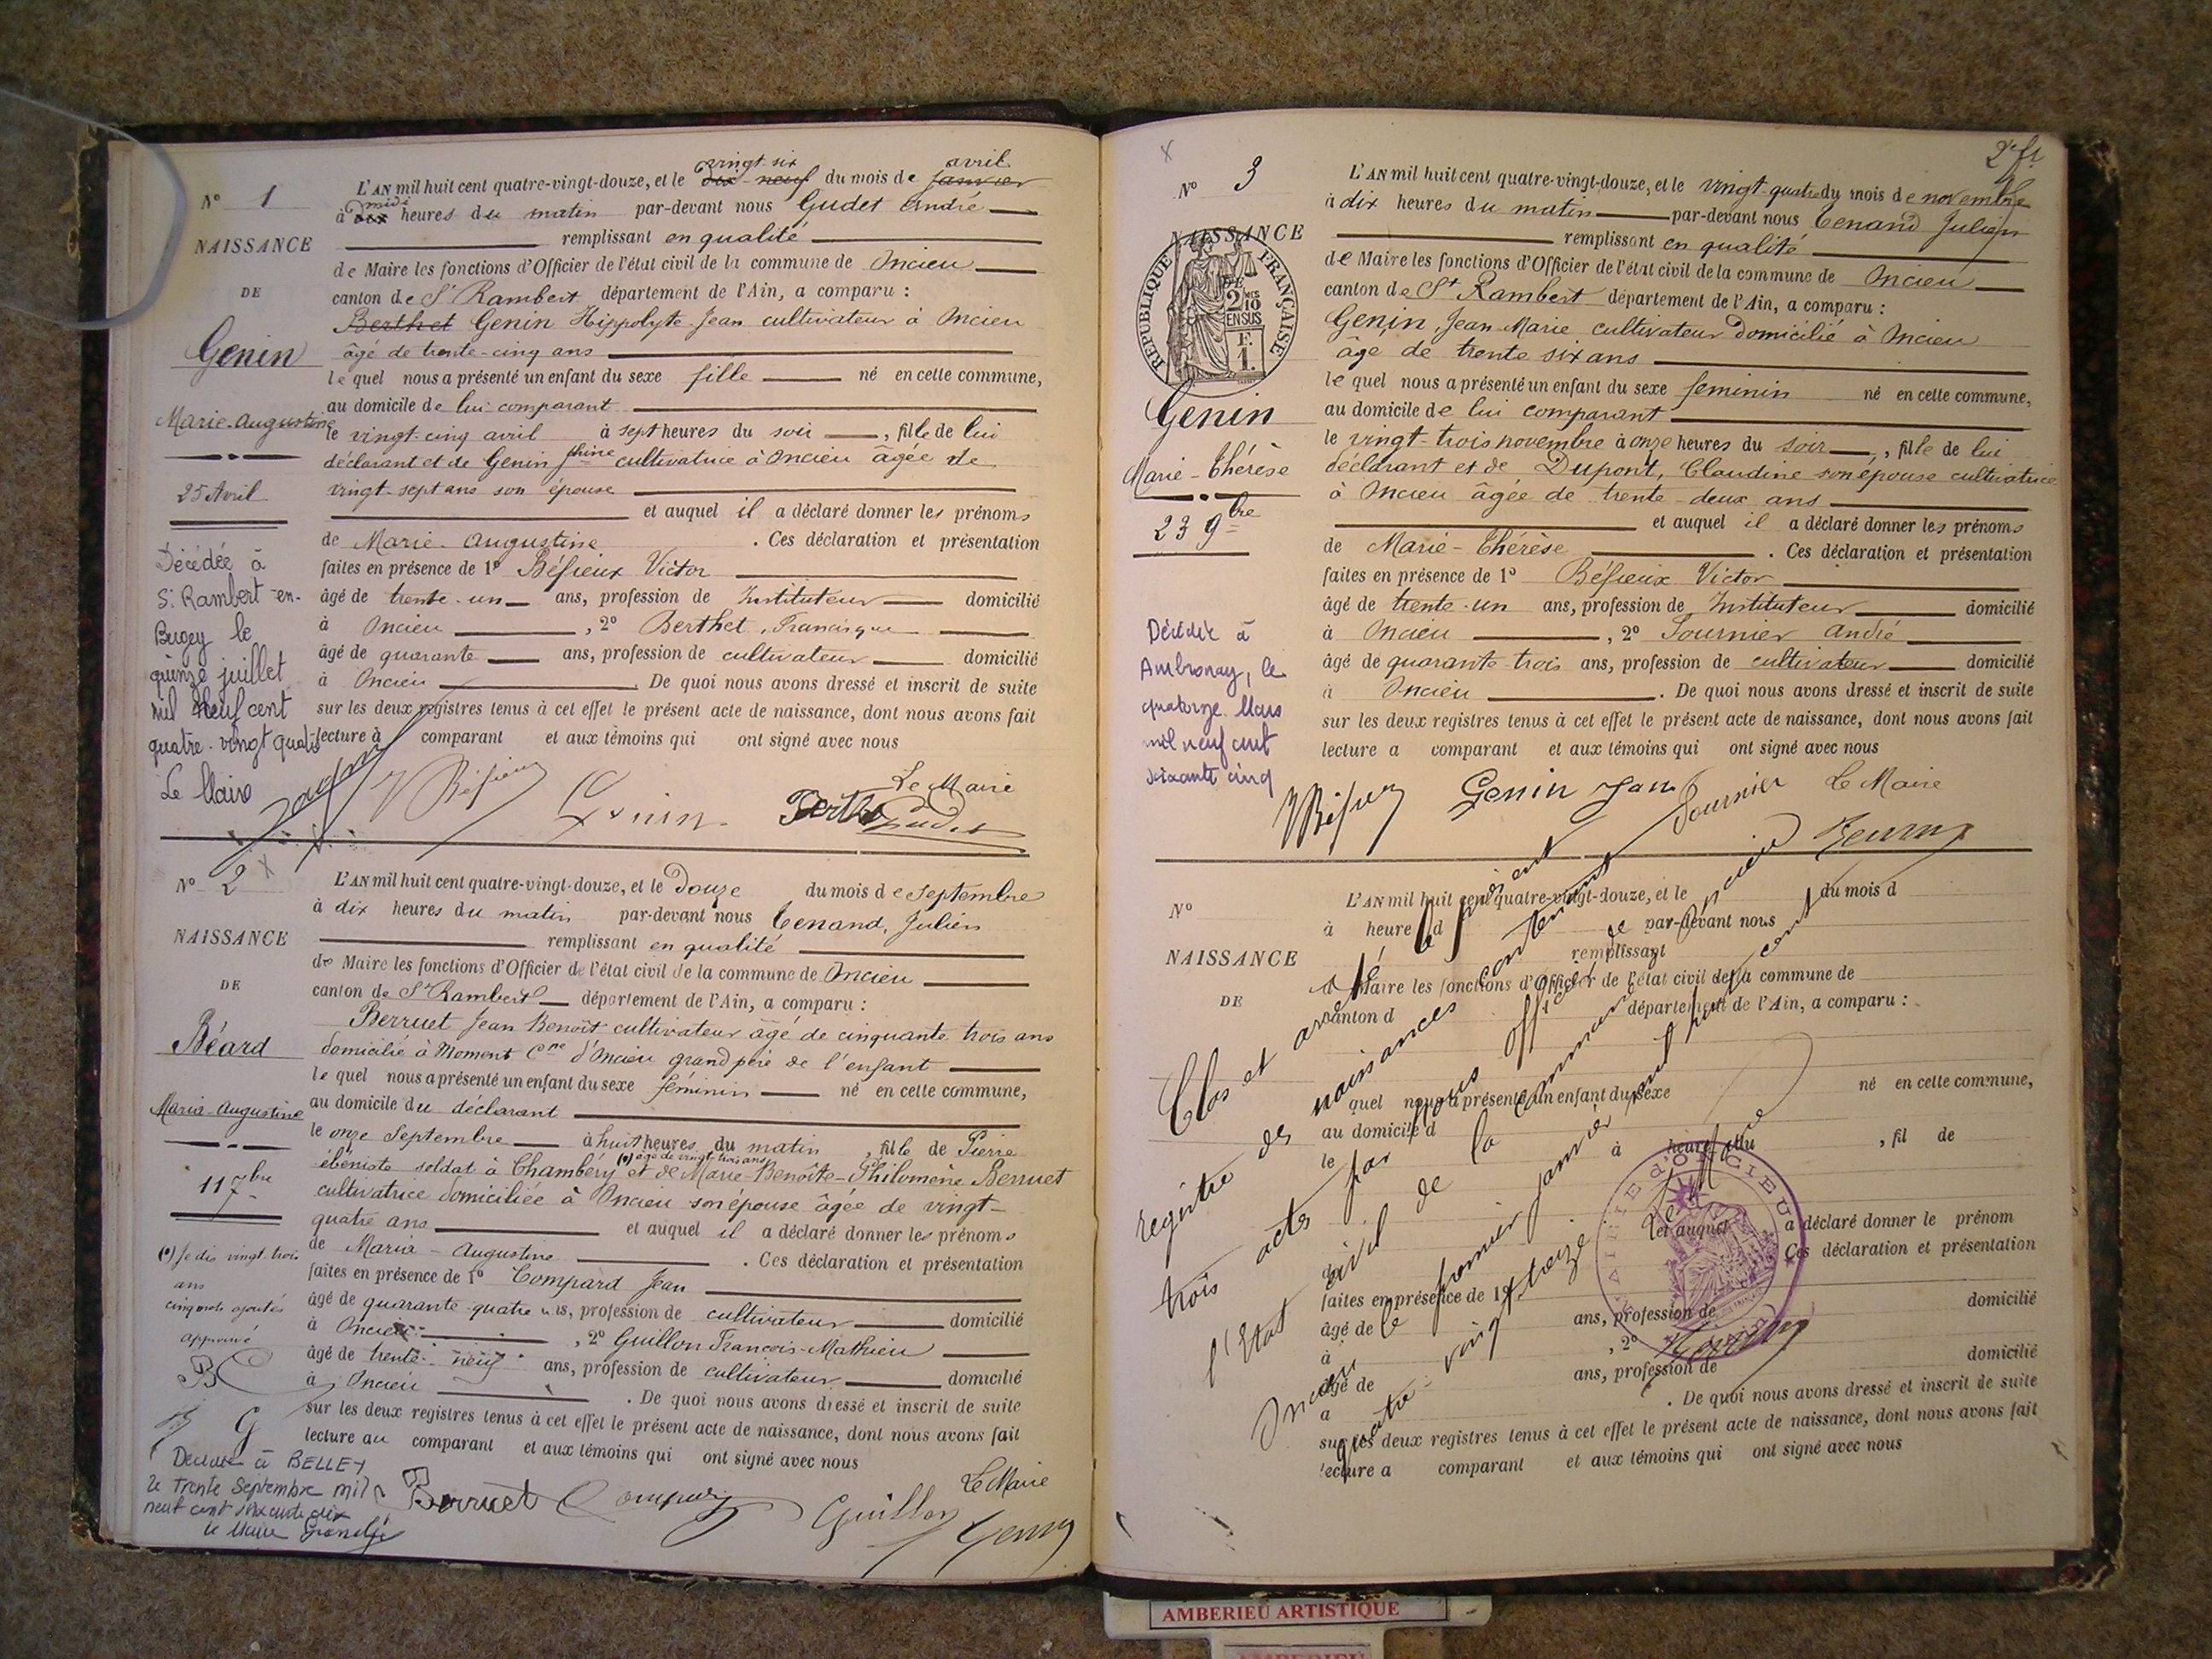 N° 1
NAISSANCE
DE
Genin
Marie-Augustine
25 Avril
Décédée à
St Rambert-en-
Bugey le
quinze juillet
mil neuf cent
quatre-vingt quatre
Le Maire
L'AN mil huit cent quatre-vingt-douze, et le dix-neuf vingt-six du mois de janvier avril
à dix midi heures du matin par-devant nous Gudet André
remplissant en qualité
de Maire les fonctions d'Officier de l'état civil de la commune de Oncieu
canton de St Rambert département de l'Ain, a comparu :
Berthet Genin Hippolyte Jean cultivateur à Oncieu
âgé de trente-cinq ans
lequel nous a présenté un enfant du sexe fille né en cette commune,
au domicile de lui comparant
le vingt-cinq avril à sept heures du soir, fille de lui
déclarant et de Genin Jphine cultivatrice à Oncieu âgée de
vingt-sept ans son épouse
et auquel il a déclaré donner les prénoms
de Marie-Augustine. Ces déclaration et présentation
faites en présence de 1° Béfieux Victor
âgé de trente-un ans, profession de Instituteur domicilié
à Oncieu, 2° Berthet, Francisque
âgé de quarante ans, profession de cultivateur domicilié
à Oncieu. De quoi nous avons dressé et inscrit de suite
sur les deux registres tenus à cet effet le présent acte de naissance, dont nous avons fait
lecture à comparant et aux témoins qui ont signé avec nous
VBéfieux Genin Berthet Le Maire
Gudet
N° 2
NAISSANCE
DE
Béard
Maria-Augustine
11 7bre
(•) Je dis vingt-trois
ans
cinq mots ajoutés
approuvé
B C
G
Décédée à BELLEY
le Trente Septembre mil
neuf cent soixante dix
le Maire
L'AN mil huit cent quatre-vingt-douze, et le douze du mois de septembre
à dix heures du matin par-devant nous Tenand, Julien
remplissant en qualité
de Maire les fonctions d'Officier de l'état civil de la commune de Oncieu
canton de St Rambert département de l'Ain, a comparu :
Berruet Jean Benoît cultivateur âgé de cinquante trois ans
domicilié à Moment Cne d'Oncieu grand père de l'enfant
lequel nous a présenté un enfant du sexe féminin né en cette commune,
au domicile du déclarant
le onze Septembre à huit heures du matin, fille de Pierre
ébéniste soldat à Chambéry (•) âgé de vingt trois ans et de Marie-Benoîte-Philomène Berruet
cultivatrice domiciliée à Oncieu son épouse âgée de vingt-
quatre ans et auquel il a déclaré donner les prénoms
de Maria-Augustine. Ces déclaration et présentation
faites en présence de 1° Compard Jean
âgé de quarante-quatre ans, profession de cultivateur domicilié
à Oncieu, 2° Guillon François-Mathieu
âgé de trente-neuf ans, profession de cultivateur domicilié
à Oncieu. De quoi nous avons dressé et inscrit de suite
sur les deux registres tenus à cet effet le présent acte de naissance, dont nous avons fait
lecture au comparant et aux témoins qui ont signé avec nous
Berruet Compard Guillon Le Maire
2e ft
N° 3
NAISSANCE
DE
RÉPUBLIQUE FRANÇAISE
2 MES
10
EN SUS
F.
1.
Genin
Marie-Thérèse
23 9bre
Décédée à
Ambronay, le
quatorze Mars
mil neuf cent
soixante cinq
L'AN mil huit cent quatre-vingt-douze, et le vingt-quatre du mois de novembre
à dix heures du matin par-devant nous Tenand Julien
remplissant en qualité
de Maire les fonctions d'Officier de l'état civil de la commune de Oncieu
canton de St Rambert département de l'Ain, a comparu :
Genin, Jean-Marie cultivateur domicilié à Oncieu
âgé de trente six ans
lequel nous a présenté un enfant du sexe feminin né en cette commune,
au domicile de lui comparant
le vingt-trois novembre à onze heures du soir, fille de lui
déclarant et de Dupont, Claudine son épouse cultivatrice
à Oncieu âgée de trente-deux ans
et auquel il a déclaré donner les prénoms
de Marie-Thérèse. Ces déclaration et présentation
faites en présence de 1° Béfieux Victor
âgé de trente-un ans, profession de Instituteur domicilié
à Oncieu, 2° Fournier André
âgé de quarante-trois ans, profession de cultivateur domicilié
à Oncieu. De quoi nous avons dressé et inscrit de suite
sur les deux registres tenus à cet effet le présent acte de naissance, dont nous avons fait
lecture a comparant et aux témoins qui ont signé avec nous
VBéfieux Genin Jean Fournier Le Maire
N°
NAISSANCE
DE
L'AN mil huit cent quatre-vingt-douze, et le du mois d
à heure d par-devant nous
remplissant
d Maire les fonctions d'Officier de l'état civil de la commune de
canton d département de l'Ain, a comparu :
quel nous a présenté un enfant du sexe né en cette commune,
au domicile d
le à heure du, fil de
et auquel a déclaré donner le prénom
de. Ces déclaration et présentation
faites en présence de 1°
âgé de ans, profession de domicilié
à, 2°
âgé de ans, profession de domicilié
à. De quoi nous avons dressé et inscrit de suite
sur les deux registres tenus à cet effet le présent acte de naissance, dont nous avons fait
lecture a comparant et aux témoins qui ont signé avec nous
Clos et arrêté le présent
registre des naissances contenant
trois actes par nous officier de
l'Etat civil de la commune de Oncieu
Oncieu le premier janvier mil huit cent
quatre-vingt-treize
Le Maire
MAIRIE d'ONCIEU
AMBERIEU ARTISTIQUE
AMBERIEU